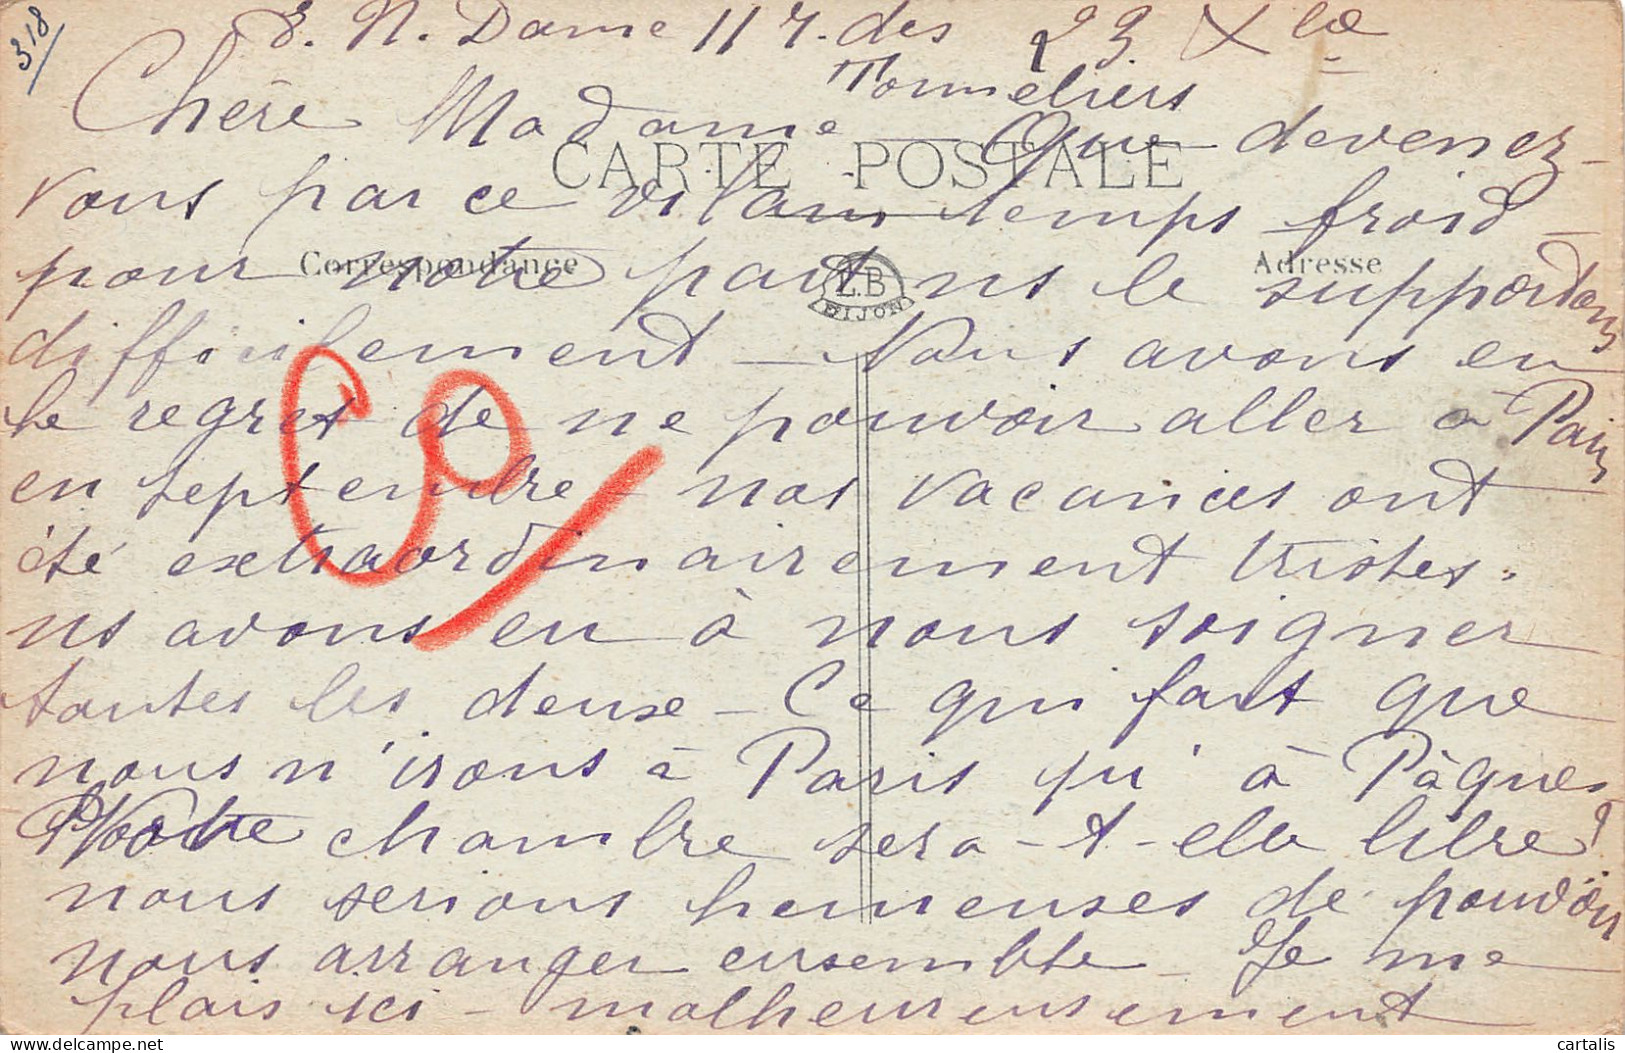 318/
E. N. Dame 11 r. des 23 Xbre
Tonneliers
Chère Madame Que devenez-
CARTE POSTALE
vous par ce vilain temps froid -
pour notre part ns le supportons
Correspondance Adresse
L.B
DIJON
difficilement - Nous avons eu
le regret de ne pouvoir aller à Paris
en septembre - nos vacances ont
été extraordinairement tristes.
ns avons eu à nous soigner
toutes les deux - Ce qui fait que
nous n'irons à Paris qu'à Pâques
Votre chambre sera-t-elle libre?
nous serions heureuses de pouvoir
nous arranger ensemble - Je me
plais ici - malheureusement
cartalis